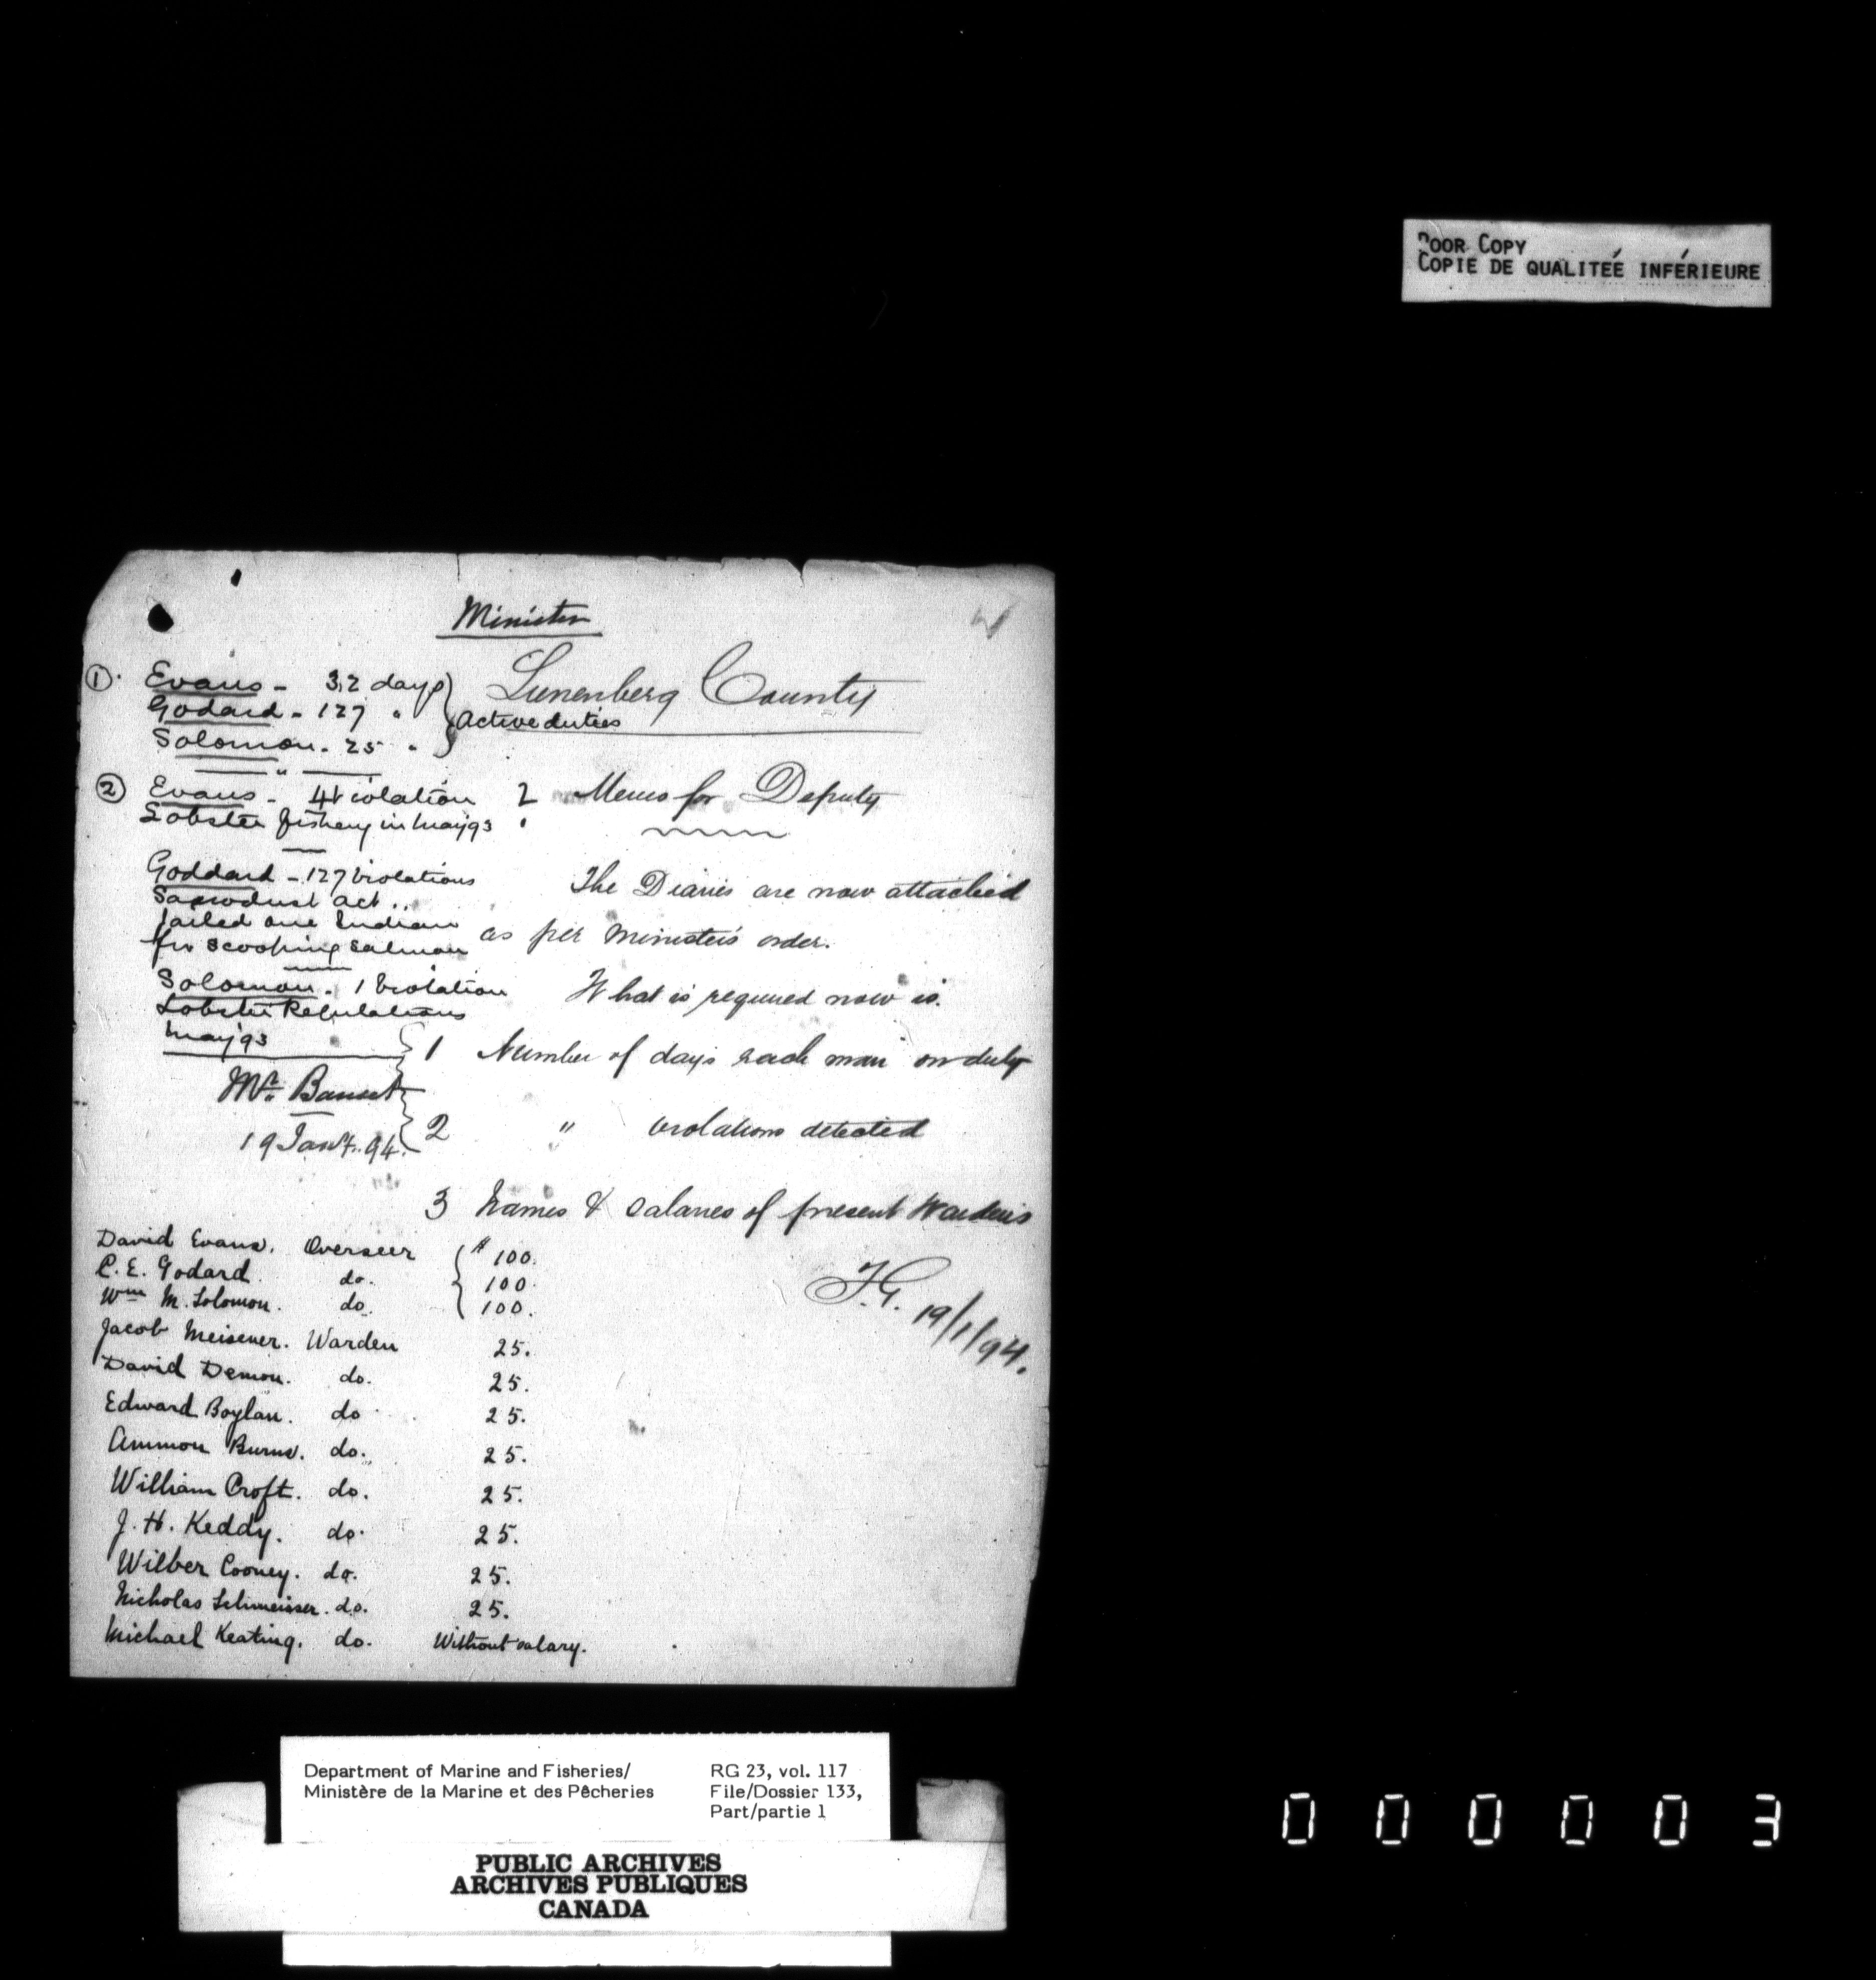 POOR COPY
COPIE DE QUALITEÉ INFÉRIEURE
Minister
Lunenberg County
① Evans - 32 days
Godard - 127 "
Solomon - 25 "
Active duties
② Evans - violation
Lobster fishery in May 93
Goddard - 127 violations
Sawdust act..
jailed one Indian
for scooping salmon
Solomon. 1 violation
Lobster Regulations
May 93
Mr.
19 Jany. 94.
Memo for Deputy
The Diaries are now attached
as per Minister's order.
What is required now is.
1 Number of days each man on duty
2 " violations detected
3 Names & Salaries of present Wardens
F.G. 19/1/94.
David Evans. Overseer $ 100.
C. E. Godard. do. 100.
Wm M. Solomon. do. 100.
Jacob Meisener. Warden 25.
David Demon. do. 25.
Edward Boylan. do 25.
Ammon Burns. do. 25.
William Croft. do. 25.
J. H. Keddy. do. 25.
Wilber Cooney. do. 25.
Nicholas Schmeisser. do. 25.
Michael Keating. do. Without salary.
Department of Marine and Fisheries/
Ministère de la Marine et des Pêcheries
RG 23, vol. 117
File/Dossier 133,
Part/partie 1
PUBLIC ARCHIVES
ARCHIVES PUBLIQUES
CANADA
000003